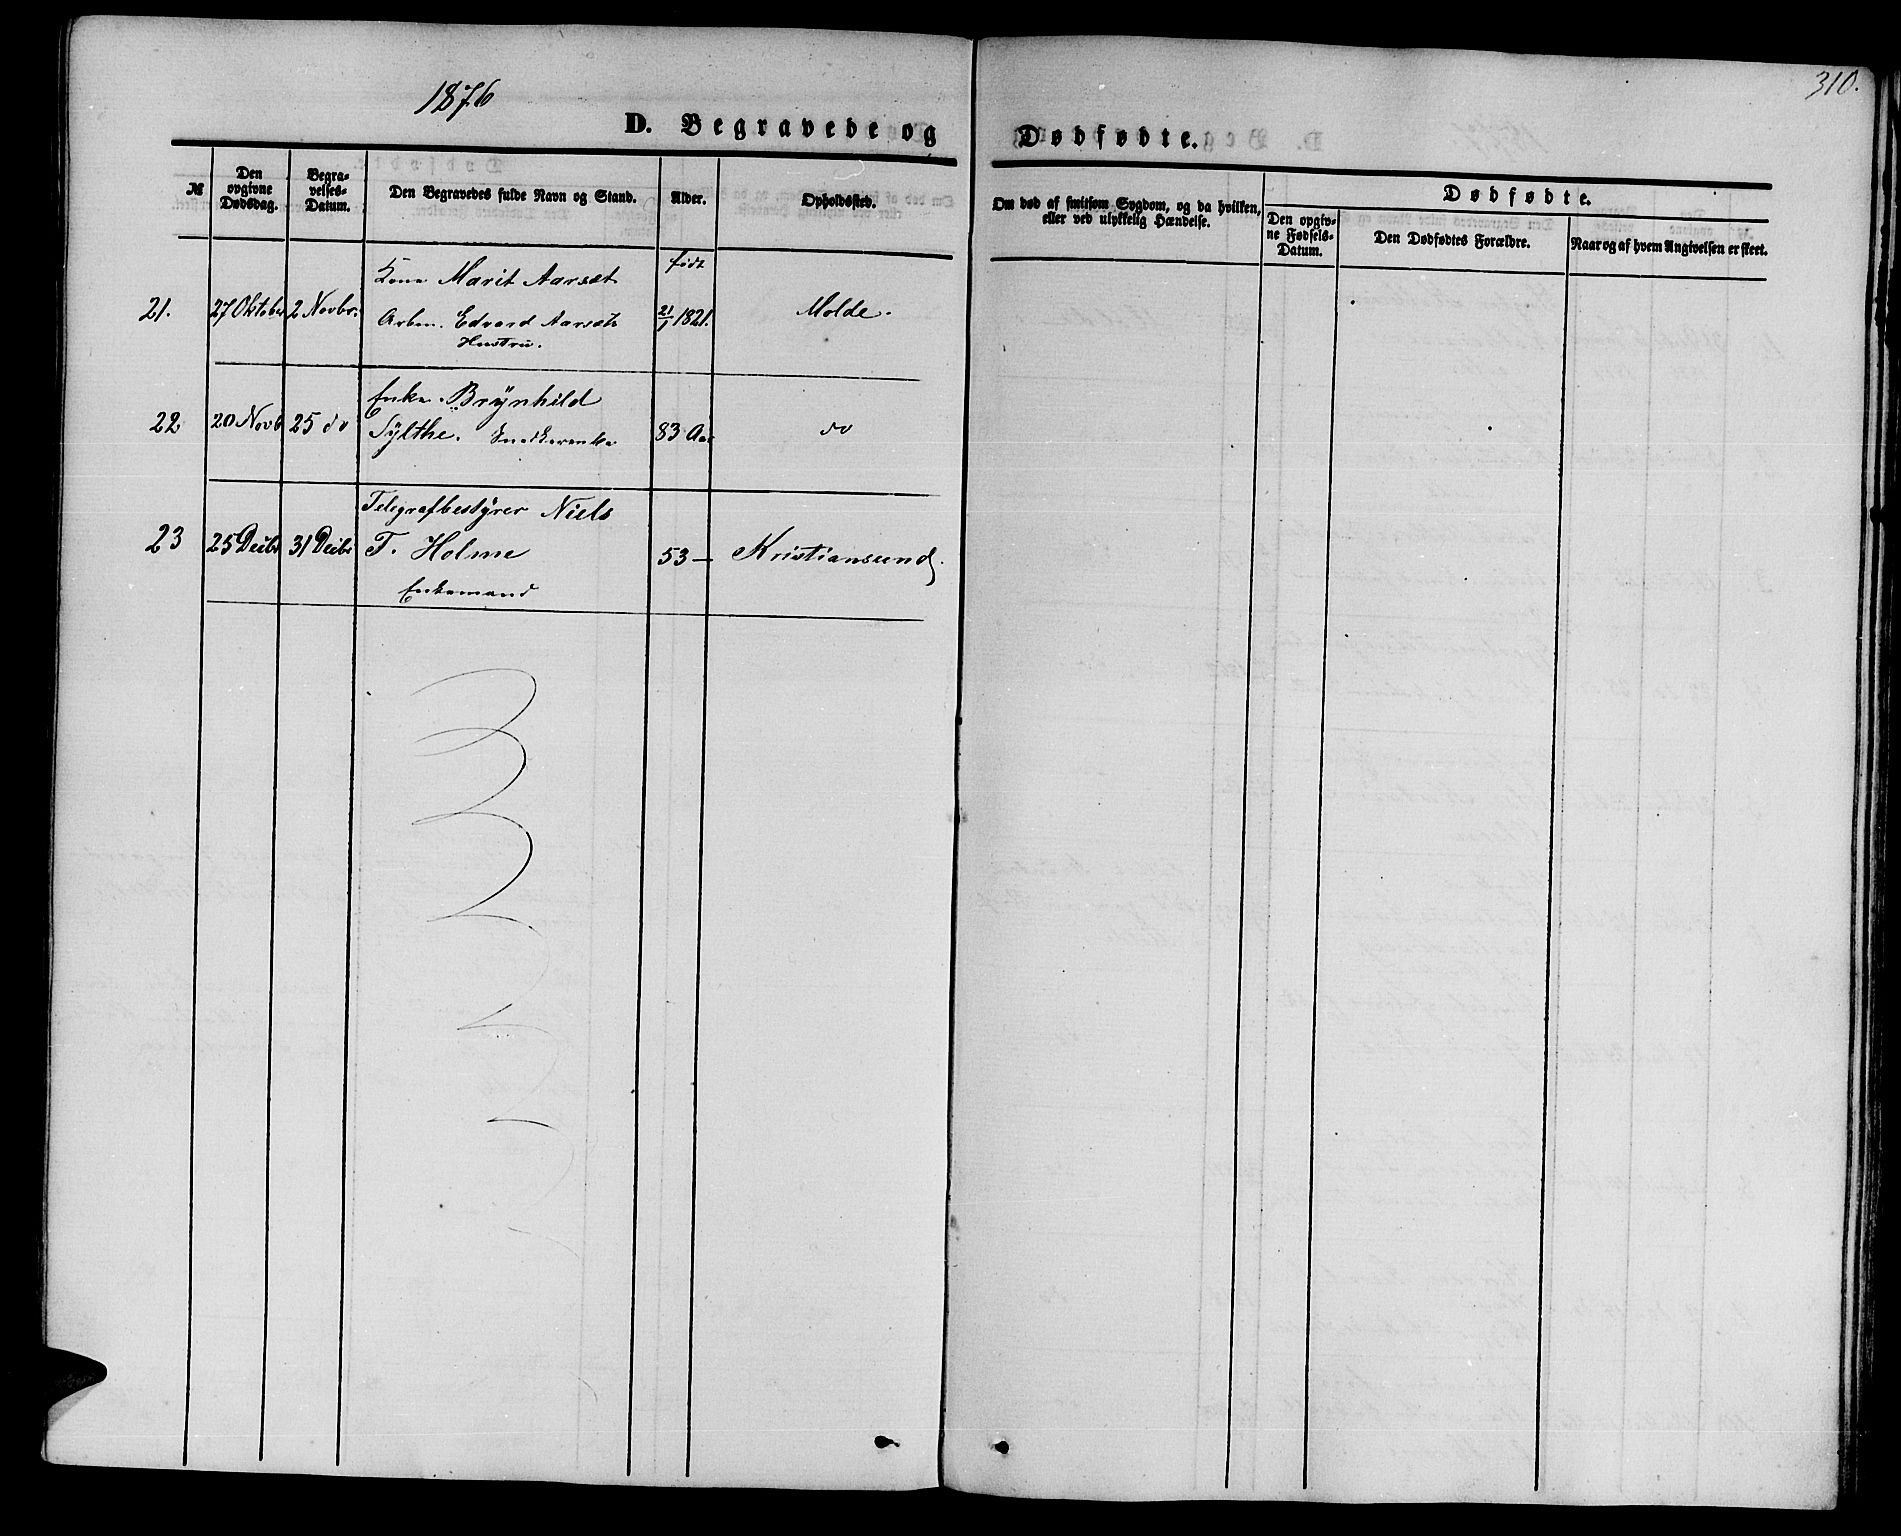 310.
1876
D. Begravede og Dødfødte.
№
Den opgivne Dødsdag.
Begravelses-Datum.
Den Begravedes fulde Navn og Stand.
Alder.
Opholdssted.
Om død af smitsom Sygdom, og da hvilken, eller ved ulykkelig Hændelse.
Dødfødte.
Den opgivne Fødsels-Datum.
Den Dødfødtes Forældre.
Naar og af hvem Angivelsen er skeet.
Kone Marit Aarsæt født
21. 27 Oktober 2 Novbr. Arbm. Edvard Aarsæts 21/1 1821. Molde.
Hustru.
Enke Brynhild
22 20 Novb 25 do Sylthe. Snedkerenke 83 Aar do
Telegrafbestyrer Niels
23 25 Decbr 31 Decbr T. Holme 53 — Kristianssund.
Enkemand